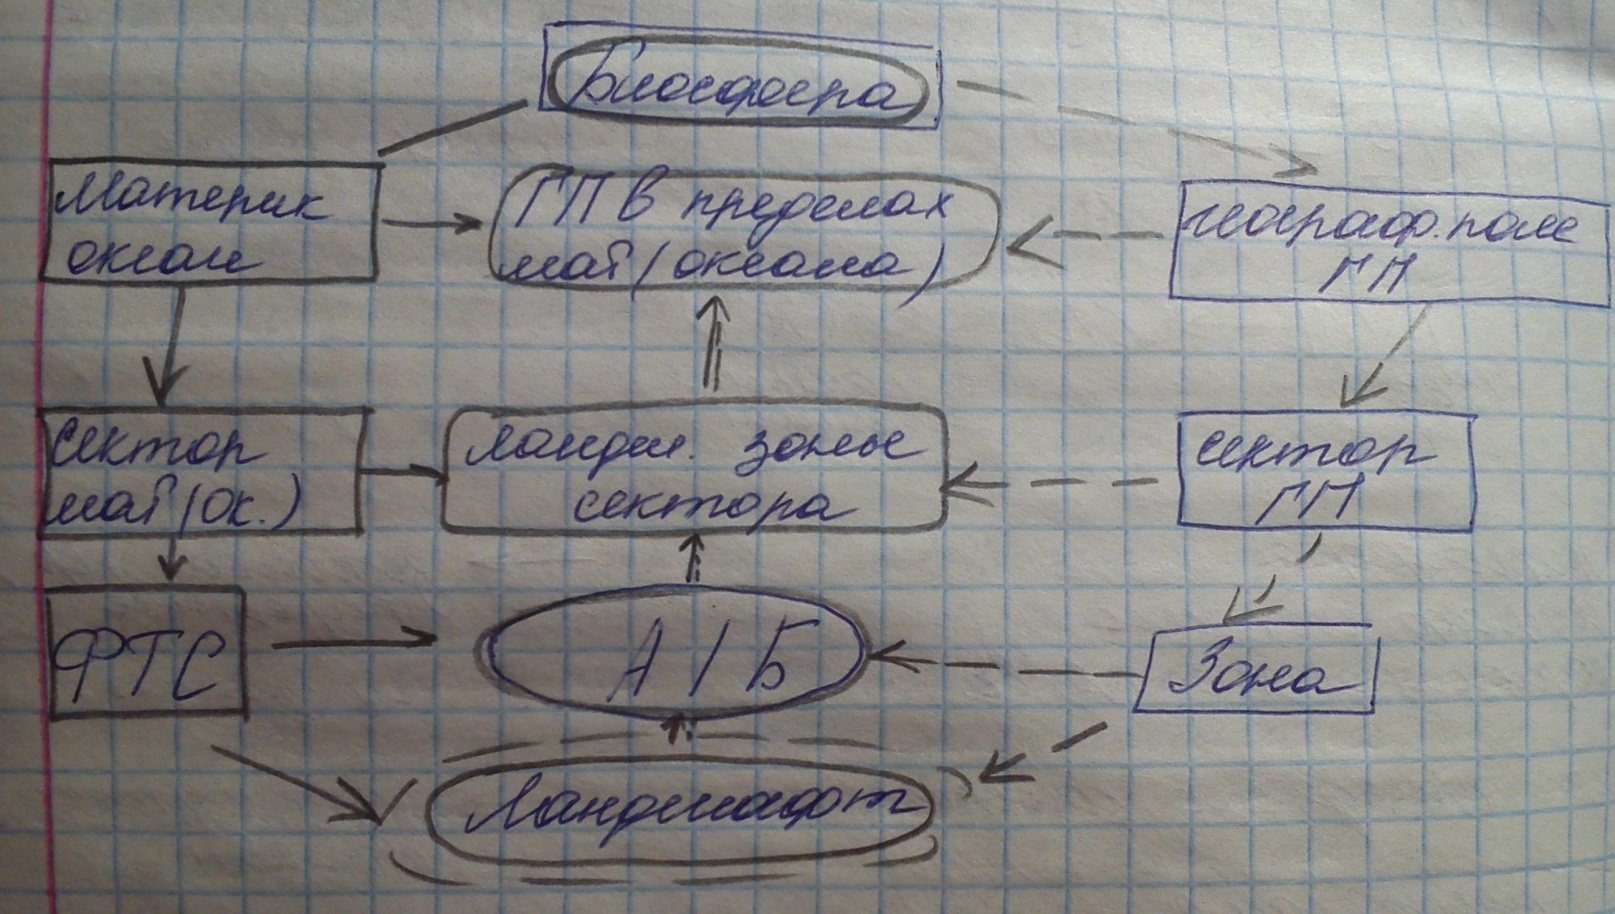 Биосфера
Материк
океан
ГП в пределах
мат (океана)
географ. поле
ГП
Сектор
мат (ок.)
ландш. зоны
сектора
сектор
ГП
ФТС
А / Б
Зона
Ландшафт